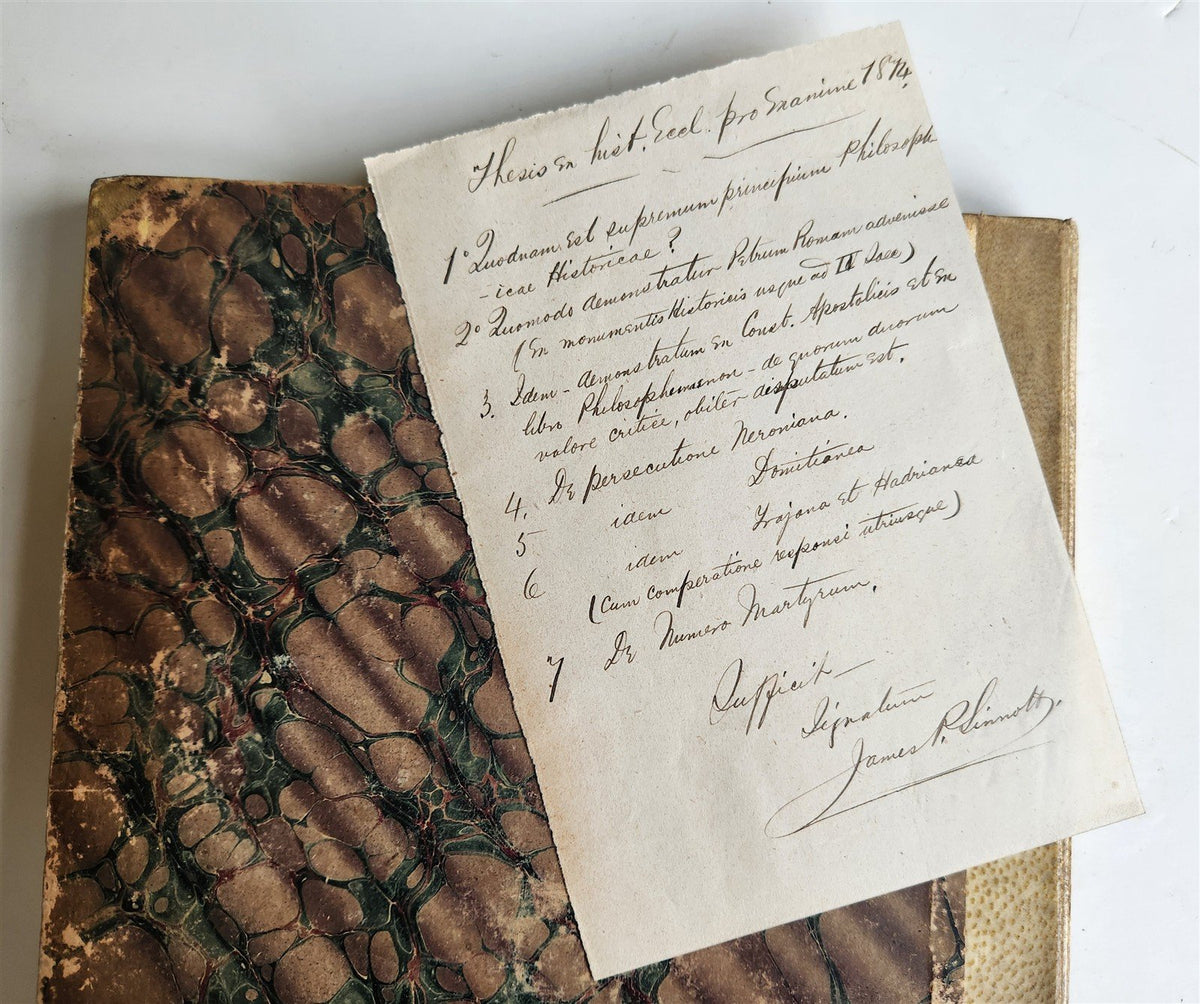 Thesis Ex hist. Eccl. pro Examine 1874.
1° Quodnam Est supremum principium Philosoph
-icae Historicae?
2° Quomodo demonstratur Petrum Romam advenisse
(Ex monumentis Historicis usque ad IV Saec)
3. Idem - demonstratum Ex Const. Apostalicis Et Ex
libro Philosophumenon - de quorum duorum
valore critice, obiter disputatum Est.
4. De persecutione Neroniana.
5 idem Domitianea
6 idem Trajana Et Hadrianea
(Cum comperatione responsi utriusque)
7 De Numero Martyrum.
Sufficit
Signatum
James P. Sinnott.